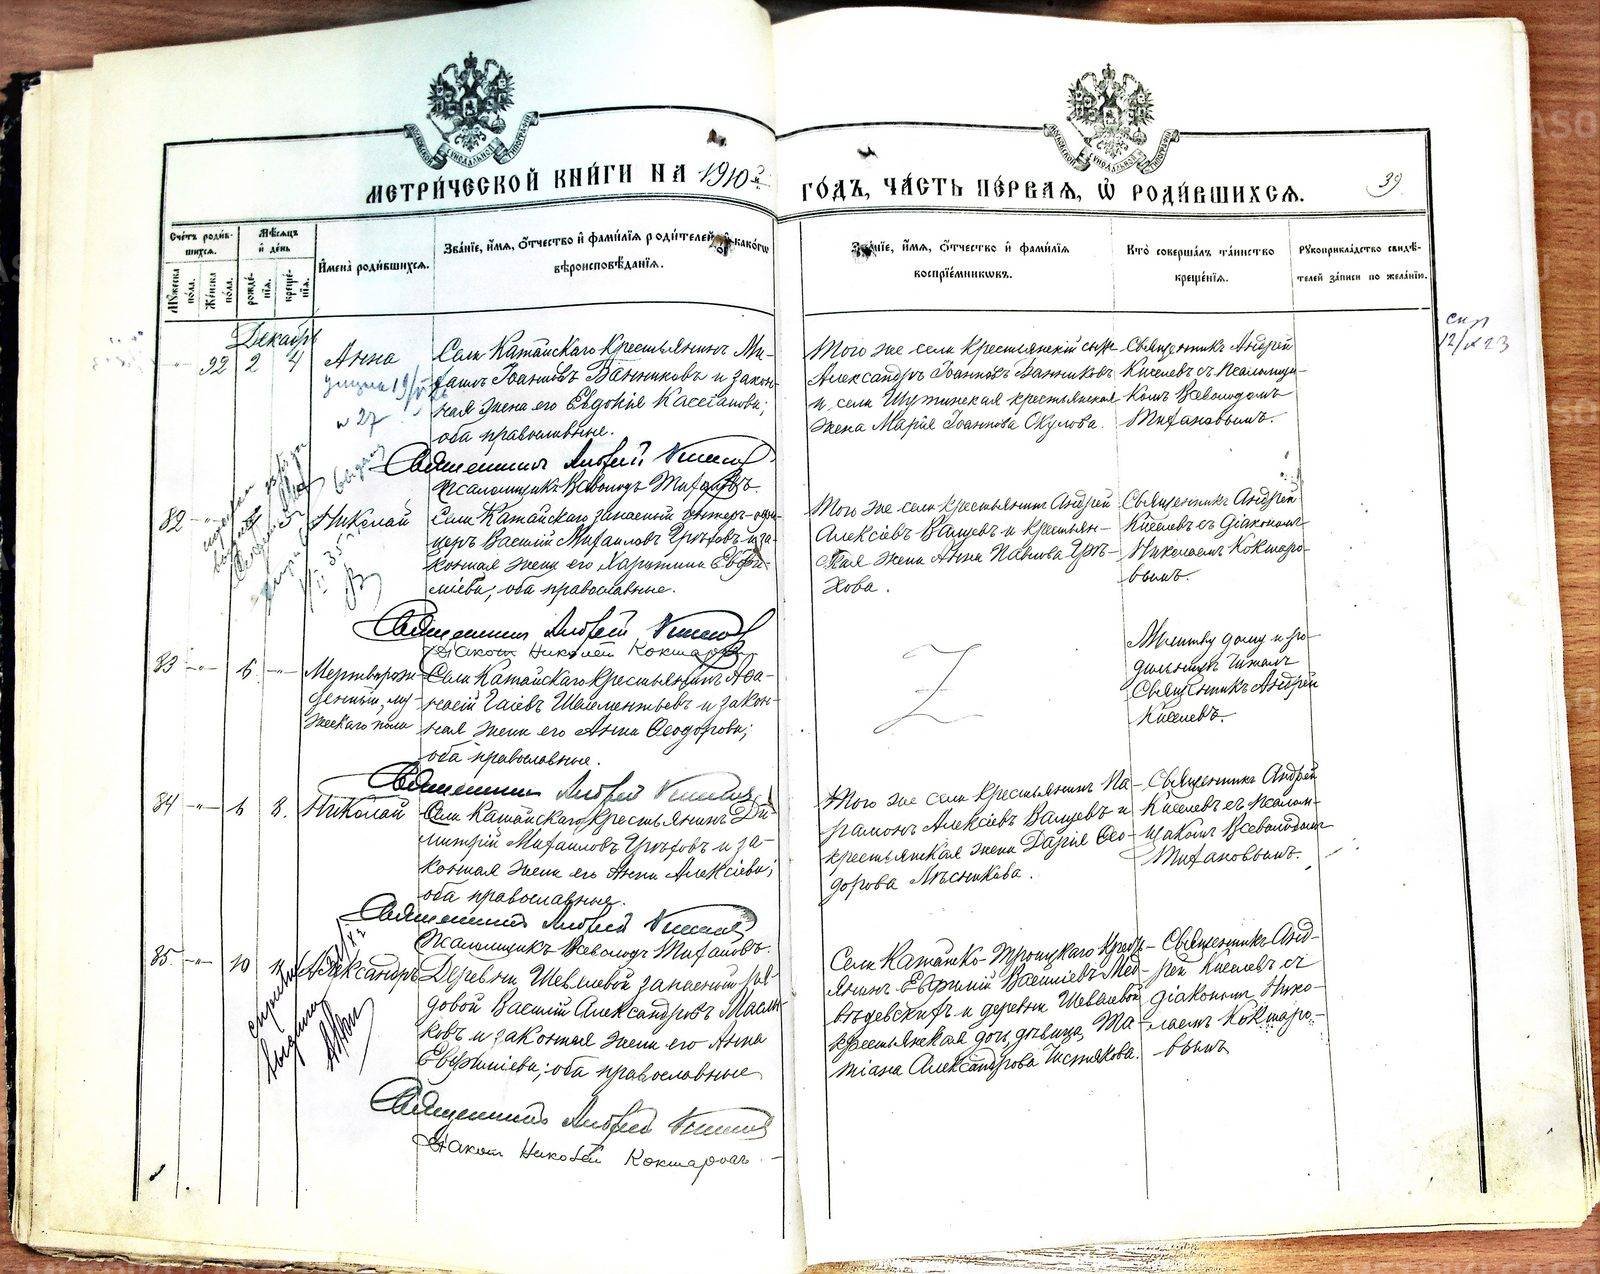 МЕТРИ́ЧЕСКОЙ КНИ́ГИ НА 1910 й
ГО́ДЪ, ЧА́СТЬ ПЕ́РВАЯ, Ѡ҆ РОДИ́ВШИХСЯ.
39
Сче́тъ роди́в-
шихся.
Мѣ́сяцъ
и҆ де́нь
Му́жеска
по́ла.
Же́нска
по́ла.
рожде́-
нїя.
креще́-
нїя.
И҆мена̀ роди́вшихся.
Зва́нїе, и҆́мя, ѻ҆́тчество и҆ фами́лїя роди́телей, и҆ како́гѡ
вѣроисповѣ́данїя.
Зва́нїе, и҆́мя, ѻ҆́тчество и҆ фами́лїя
воспрїе́мникѡвъ.
Кто̀ соверша́лъ та́инство
креще́нїя.
Рꙋкоприкла́дство свидѣ́-
телей за́писи по жела́нїю.
Декабрь
92 2 4 Анна
Села Катайскаго крестьянинъ Ми-
хаилъ Іоанновъ Ванниковъ и закон-
ная жена его Евдокія Кассіанова;
оба православные.
Священникъ Андрей Киселевъ
Псаломщикъ Всеволодъ Тихановъ.
Того же села крестьянскій сынъ
Александръ Іоанновъ Ванниковъ
и села Шутинская крестьянская
жена Марія Іоаннова Окулова.
Священникъ Андрей
Киселевъ съ псаломщи-
комъ Всеволодомъ
Тихановымъ.
82 -"- 4 5 Николай
Села Катайскаго запасный унтеръ-офи-
церъ Василій Михаиловъ Грѣховъ и за-
конная жена его Харитина Евфи-
міева; оба православные.
Священникъ Андрей Киселевъ
Діаконъ Николай Кокшаровъ
Того же села крестьянинъ Андрей
Алексіевъ Валуевъ и крестьян-
ская жена Анна Павлова Грѣ-
хова.
Священникъ Андрей
Киселевъ съ діакономъ
Николаемъ Кокшаро-
вымъ.
83 -"- 6 -"- Мертворож-
денный му-
жескаго пола
Села Катайскаго крестьянинъ Аѳа-
насій Гаіевъ Шалментьевъ и закон-
ная жена его Анна Ѳеодорова;
оба православные.
Священникъ Андрей Киселевъ
Z
Молитву дому и ро-
дильницѣ читалъ
Священникъ Андрей
Киселевъ.
84 -"- 6 8. Николай
Села Катайскаго крестьянинъ Ди-
митрій Михаиловъ Грѣховъ и за-
конная жена его Анна Алексіева;
оба православные.
Священникъ Андрей Киселевъ
Псаломщикъ Всеволодъ Тихановъ.
Того же села крестьянинъ Па-
рамонъ Алексіевъ Валуевъ и
крестьянская жена Дарія Ѳео-
дорова Лѣсникова.
Священникъ Андрей
Киселевъ съ псалом-
щикомъ Всеволодомъ
Тихановымъ.
85 -"- 10 Александръ
Деревни Шевелевой запасный ря-
довой Василій Александровъ Масли-
ковъ и законная жена его Анна
Евфиміева; оба православные
Священникъ Андрей Киселевъ
Діаконъ Николай Кокшаровъ
Села Катайско-Троицкаго кресть-
янинъ Евфимій Василіевъ Мед-
вѣдевскихъ и деревни Шевелевой
крестьянская дочь дѣвица Та-
тіана Александрова Чистякова.
Священникъ Анд-
рей Киселевъ съ
діакономъ Нико-
лаемъ Кокшаро-
вымъ